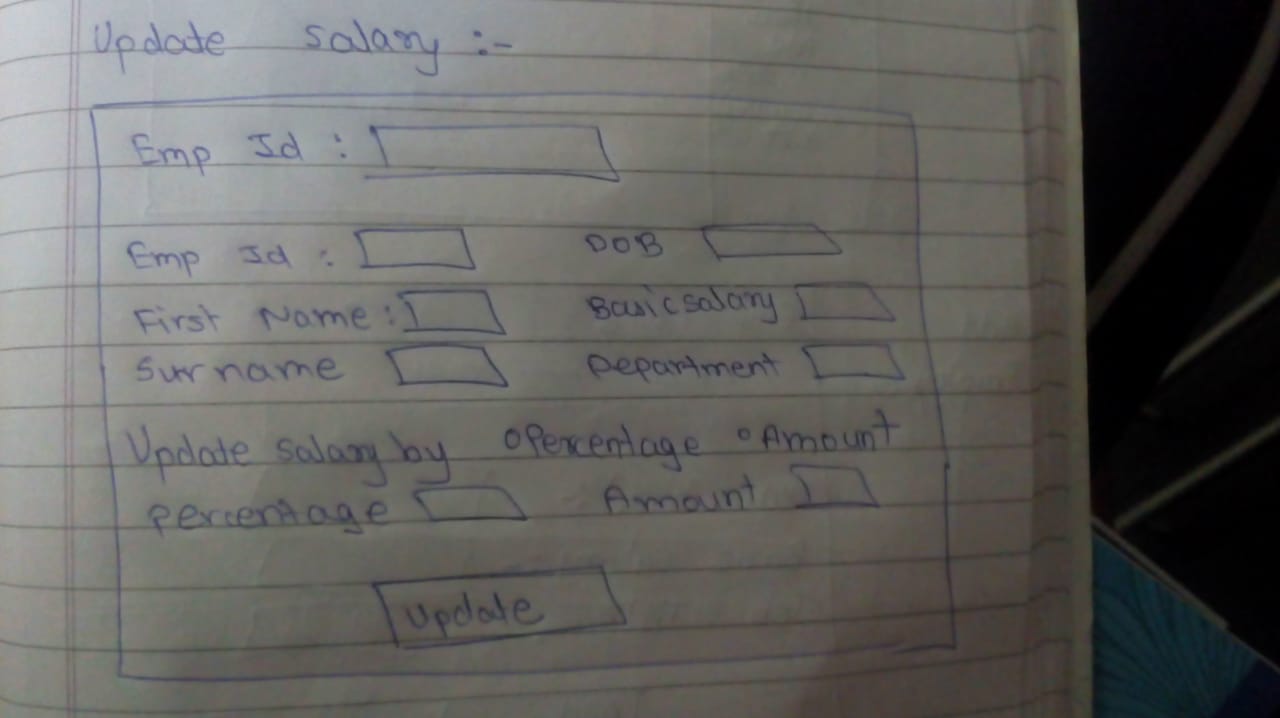 Update Salary :-
Emp Id :
Emp Id : DOB
First Name : Basic salary
Surname Department
Update salary by Percentage Amount
percentage Amount
Update